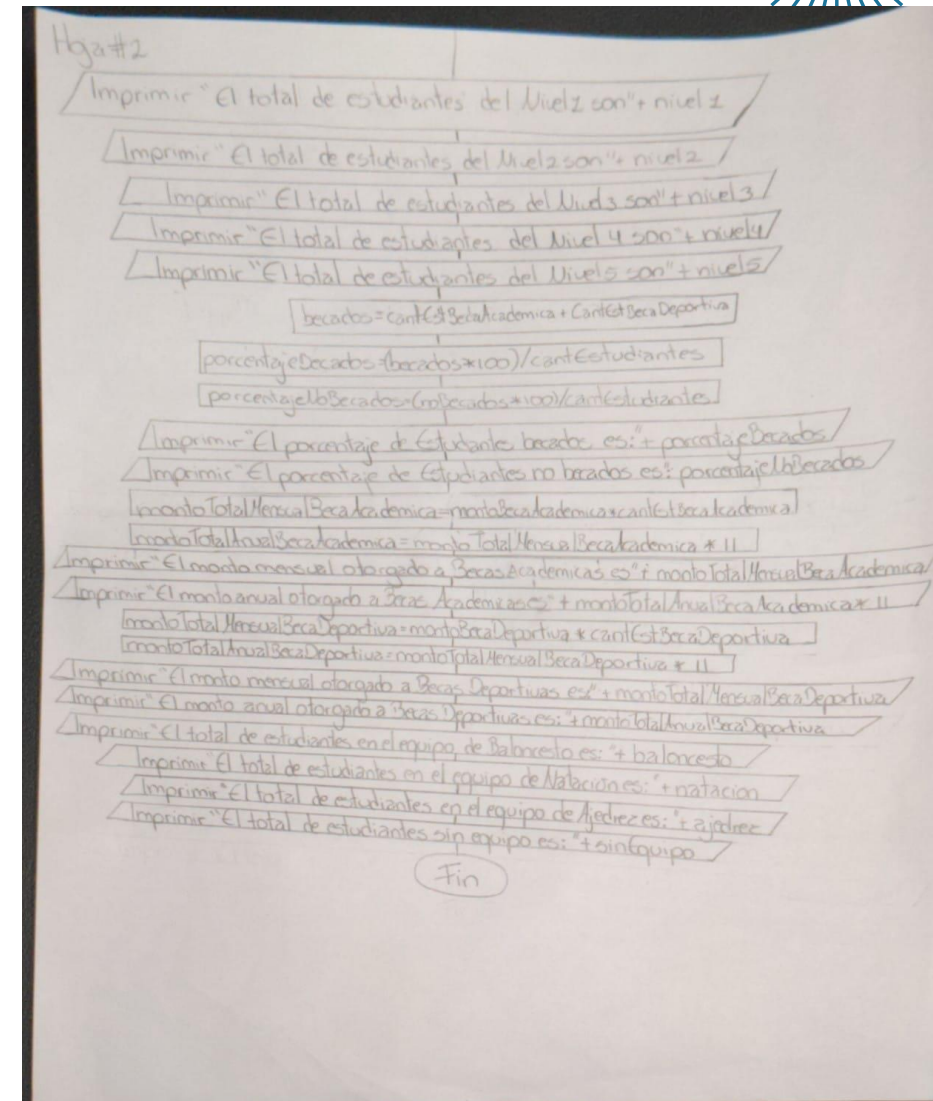 Hoja#2
Imprimir "El total de estudiantes del Nivel1 son"+ nivel 1
Imprimir "El total de estudiantes del Nivel2 son"+ nivel2
Imprimir "El total de estudiantes del Nivel3 son"+ nivel3
Imprimir "El total de estudiantes del Nivel 4 son"+ nivel4
Imprimir "El total de estudiantes del Nivel5 son"+ nivel5
becados=cantEstBecaAcademica + CantEstBecaDeportiva
porcentajeBecados=(becados*100)/cantEstudiantes
porcentajeNoBecados=(noBecados*100)/cantEstudiantes
Imprimir "El porcentaje de Estudiante becados es:"+ porcentajeBecados
Imprimir "El porcentaje de Estudiantes no becados es: porcentajeNoBecados
montoTotalMensualBecaAcademica=montoBecaAcademica*cantEstBecaAcademica
montoTotalAnualBecaAcademica=montoTotalMensualBecaAcademica * 11
Imprimir "El monto mensual otorgado a Becas Academicas es"+ montoTotalMensualBecaAcademica
Imprimir "El monto anual otorgado a Becas Academicas es"+ montoTotalAnualBecaAcademica* 11
montoTotalMensualBecaDeportiva=montoBecaDeportiva * cantEstBecaDeportiva
montoTotalAnualBecaDeportiva=montoTotalMensualBecaDeportiva * 11
Imprimir "El monto mensual otorgado a Becas Deportivas es"+ montoTotalMensualBecaDeportiva
Imprimir "El monto anual otorgado a Becas Deportivas es:"+montoTotalAnualBecaDeportiva
Imprimir "El total de estudiantes en el equipo de Baloncesto es: "+ baloncesto
Imprimir "El total de estudiantes en el equipo de Natación es: "+natacion
Imprimir "El total de estudiantes en el equipo de Ajedrez es: "+ajedrez
Imprimir "El total de estudiantes sin equipo es: "+sinEquipo
Fin